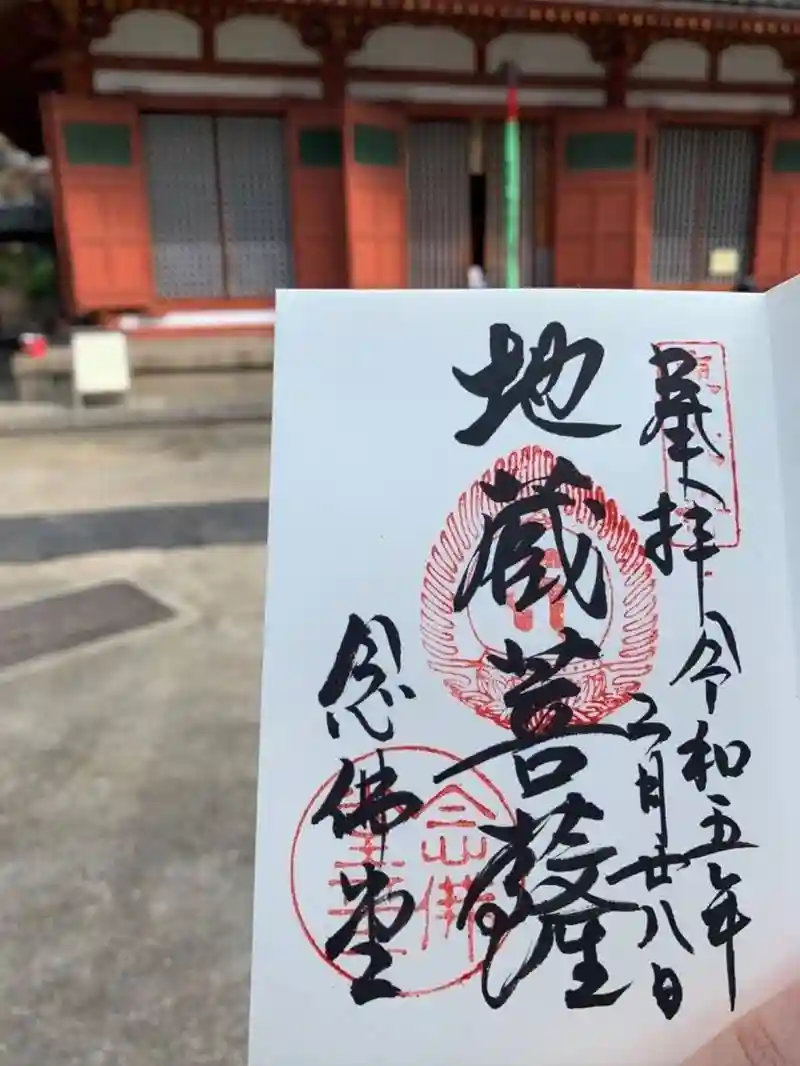 奉拝
令和五年
二月廿八日
地蔵菩薩
念佛堂
念佛堂